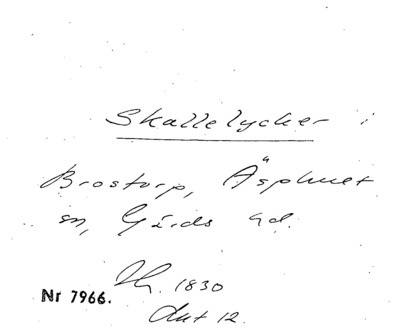 Skallelycker i
Brostorp, Äsphult
sn, Gärds hd.
Nr 7966. 1830
Akt 12.